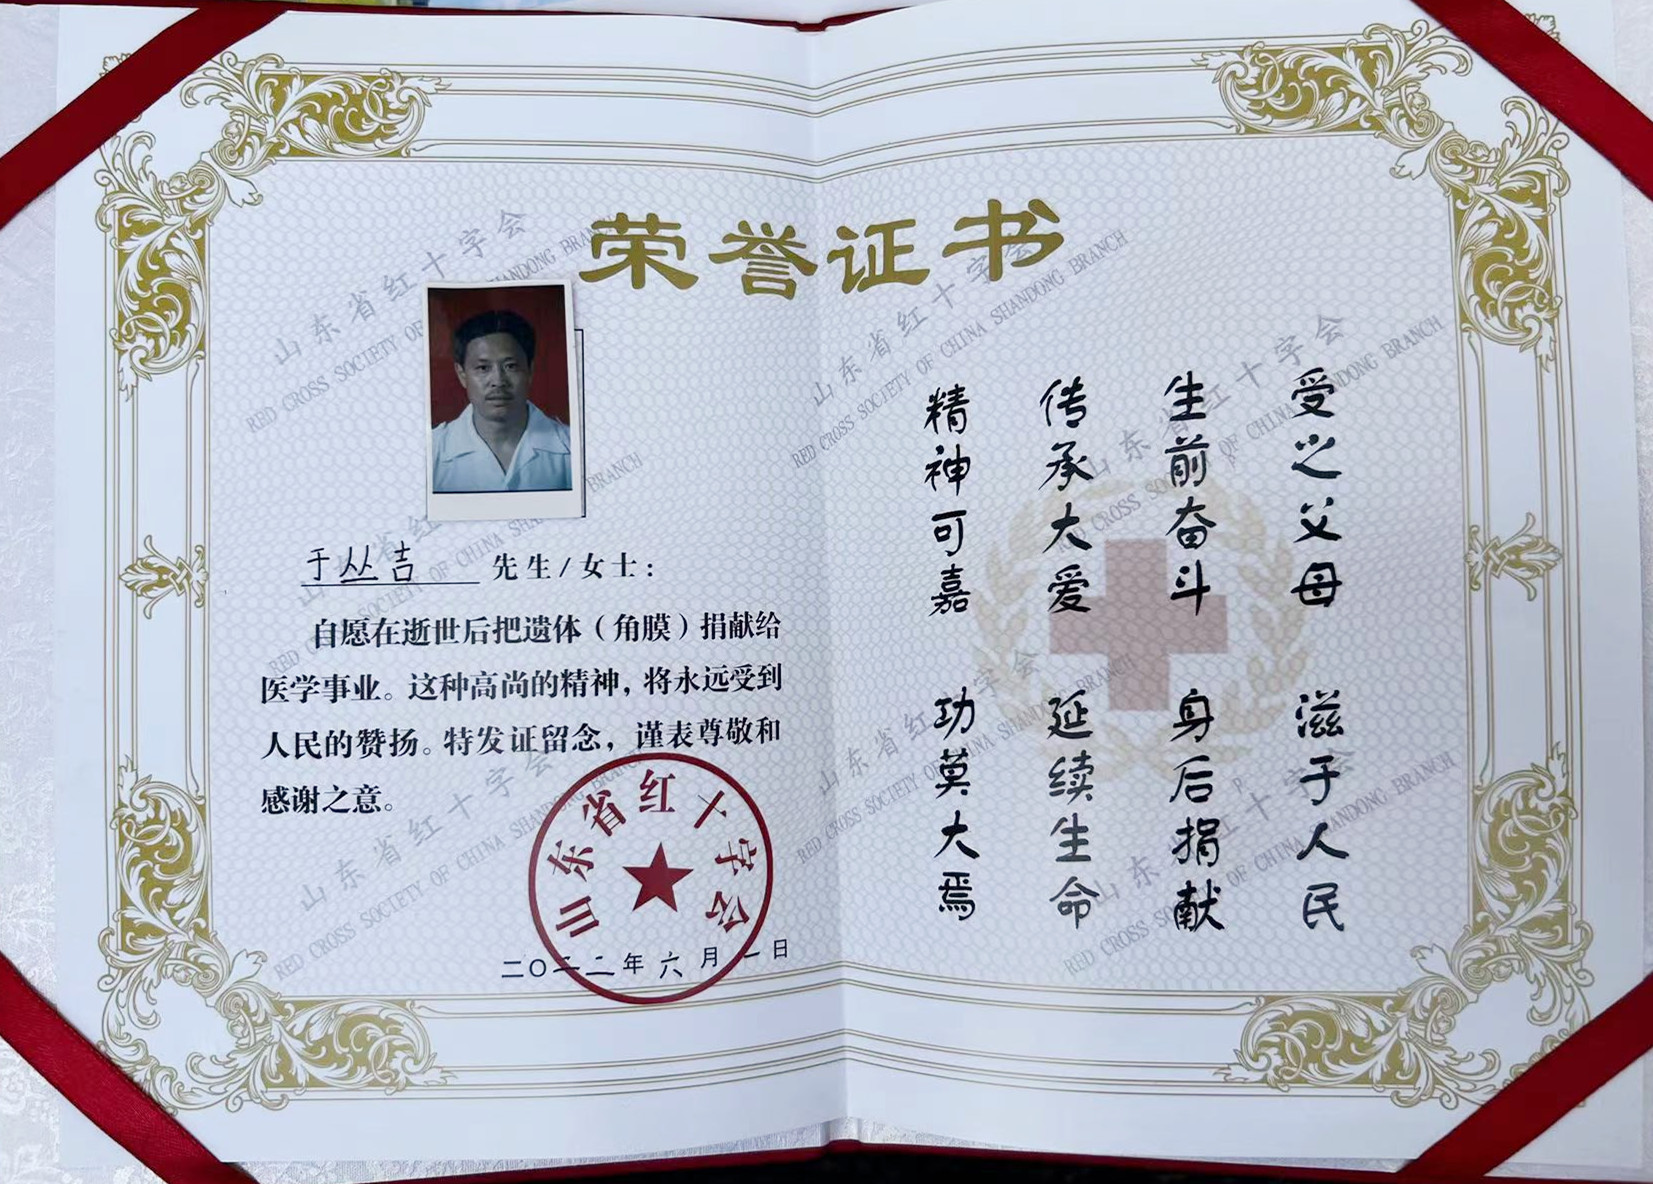 荣誉证书
于丛吉 先生/女士:
自愿在逝世后把遗体(角膜)捐献给
医学事业。这种高尚的精神,将永远受到
人民的赞扬。特发证留念,谨表尊敬和
感谢之意。
山东省红十字会
二〇二二年六月一日
受之父母 滋于人民
生前奋斗 身后捐献
传承大爱 延续生命
精神可嘉 功莫大焉
山东省红十字会
RED CROSS SOCIETY OF CHINA SHANDONG BRANCH